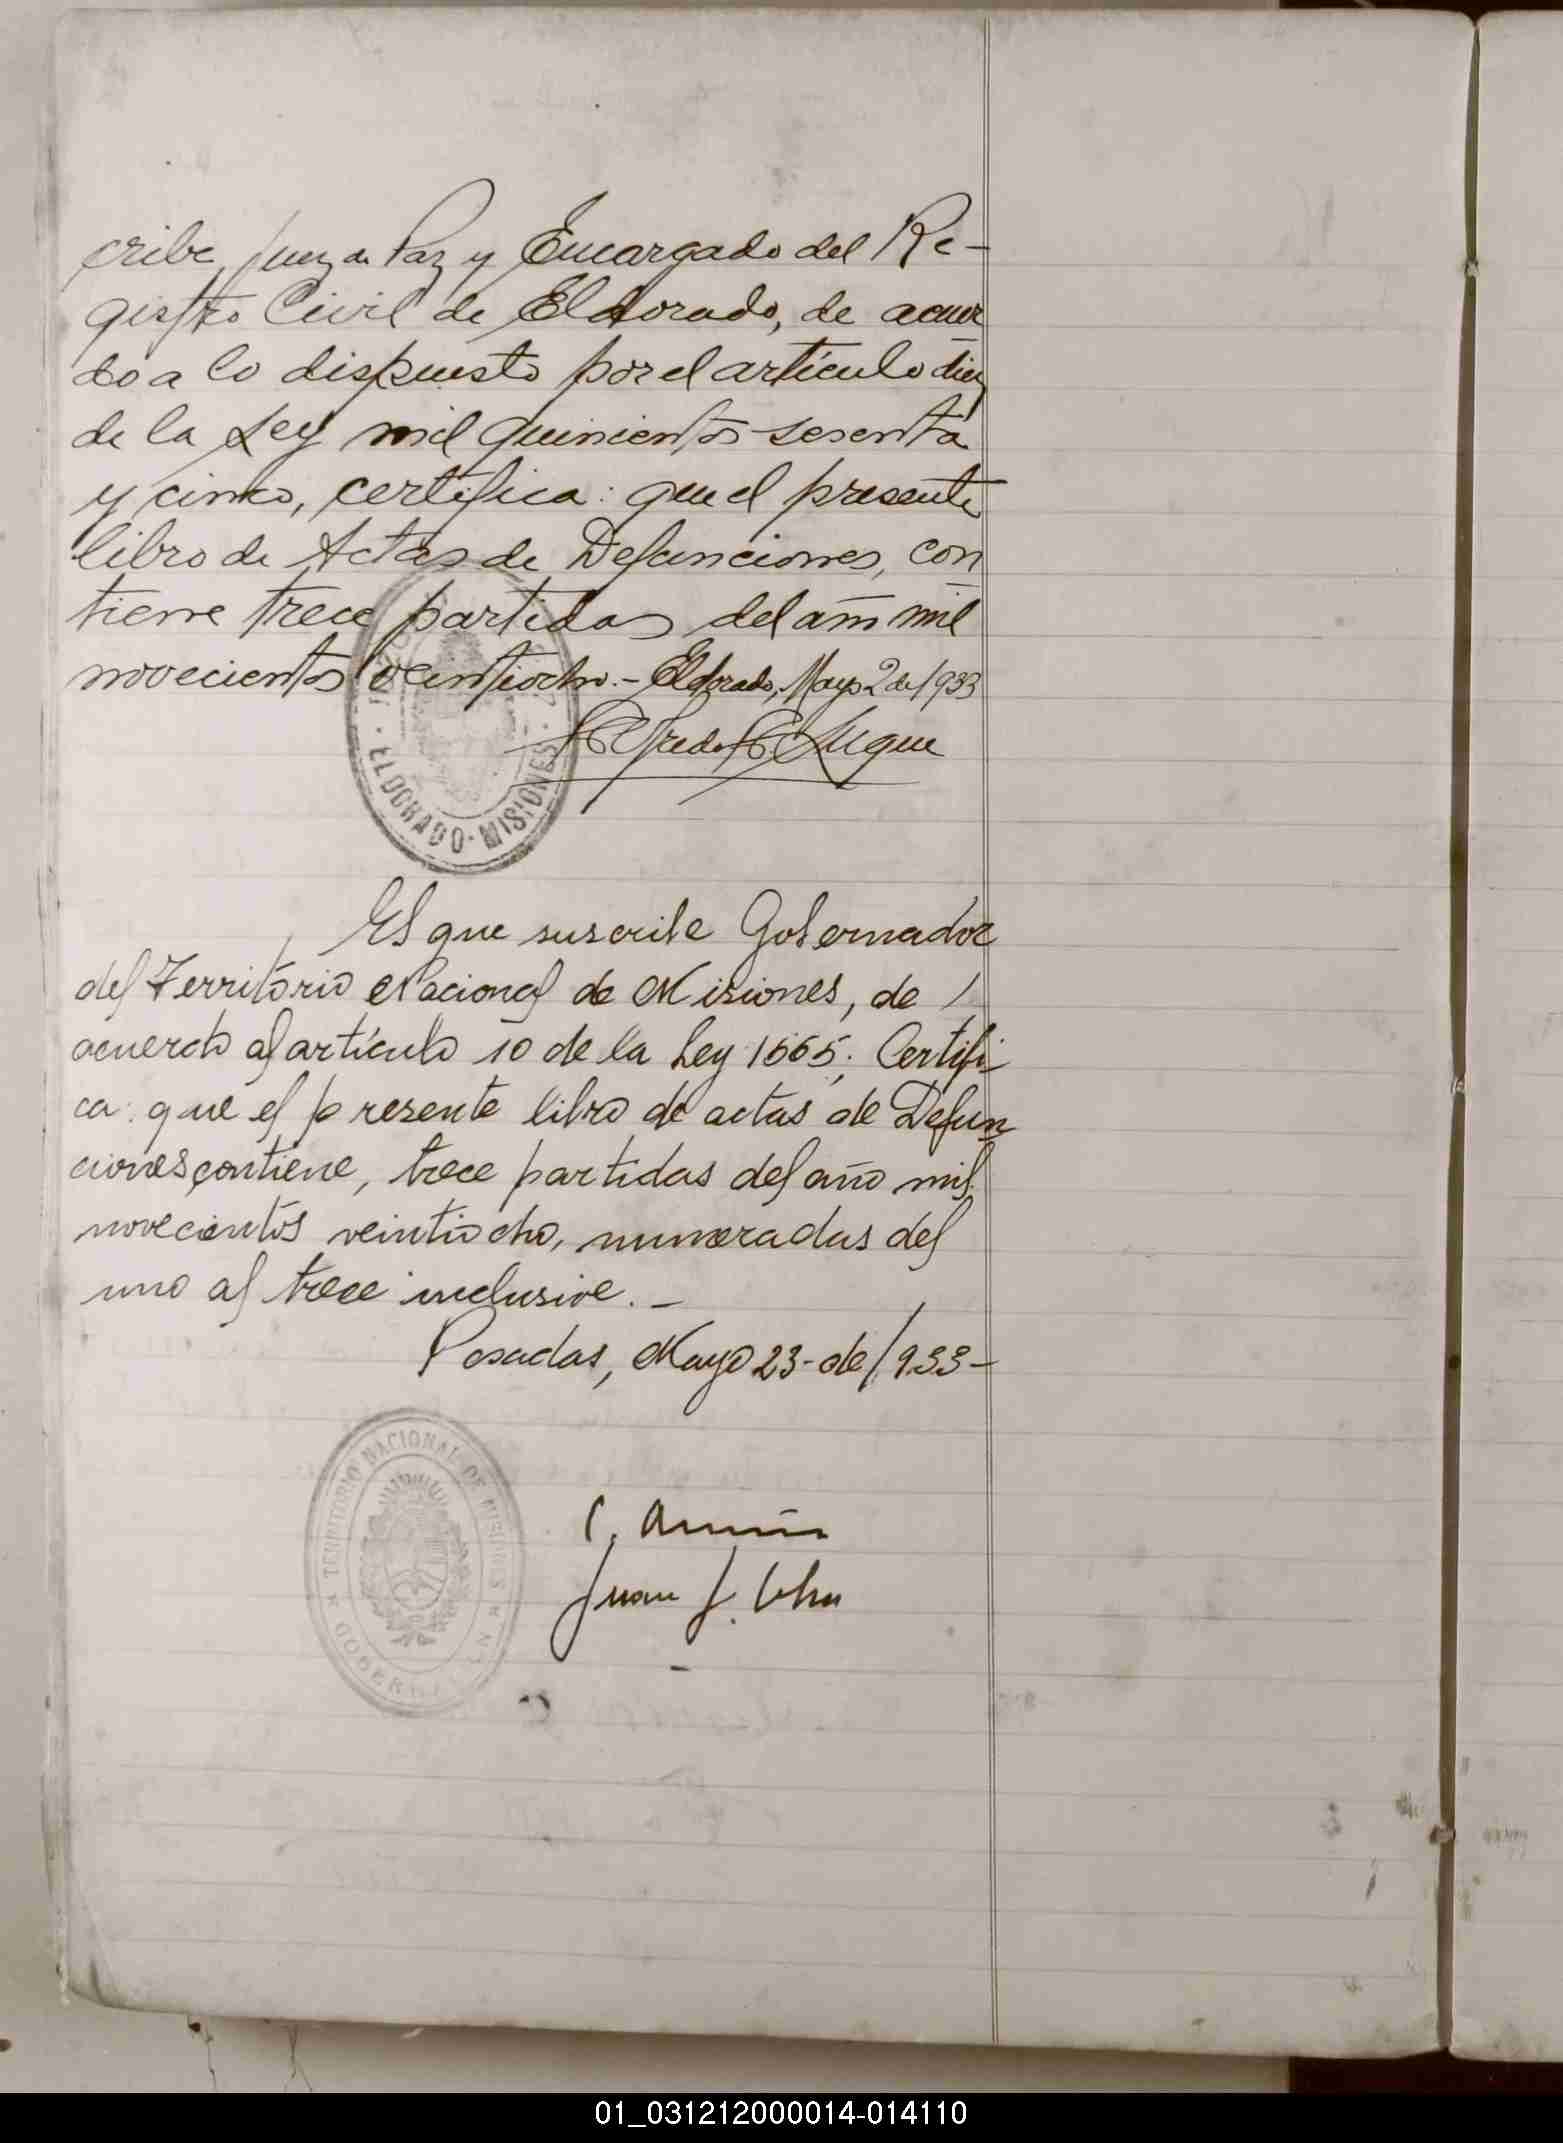 cribe, Juez de Paz y Encargado del Re-
gistro Civil de Eldorado, de acuer
do a lo dispuesto por el artículo diez
de la Ley mil quinientos sesenta
y cinco, certifica: que el presente
libro de Actas de Defunciones, con
tiene trece partidas del año mil
novecientos veintiocho.- Eldorado, Mayo 2 de/933
Alfredo Luque
ELDORADO - MISIONES
El que suscribe Gobernador
del Territorio Nacional de Misiones, de /
acuerdo al artículo 10 de la Ley 1565; Certifi-
ca: que el presente libro de actas de Defun
ciones contiene, trece partidas del año mil
novecientos veintiocho, numeradas del
uno al trece inclusive.-
Posadas, Mayo 23-de/933-
TERRITORIO NACIONAL DE MISIONES
C.
Juan J.
01_031212000014-014110